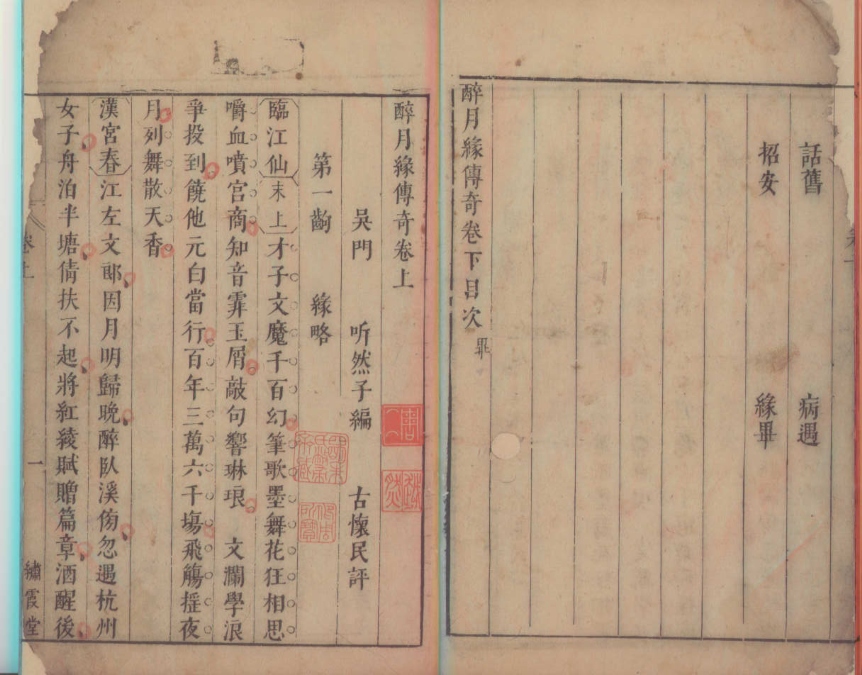 話舊 病遇
招安 緣畢
醉月緣傳奇卷下目次畢
醉月緣傳奇卷上
吳門 听然子編 古懷民評
第一齣 緣略
臨江仙 末上 才子文魔千百幻筆歌墨舞花狂相思
嚼血噴宮商知音霏玉屑敲句響琳琅 文瀾學浪
爭投到饒他元白當行百年三萬六千塲飛觴揺夜
月列舞散天香
漢宮春 江左文 因月明歸晚醉臥溪傍忽遇杭州
女子舟泊半塘倩扶不起將紅綾賦贈篇章酒醒後
卷上
一
繡霞堂